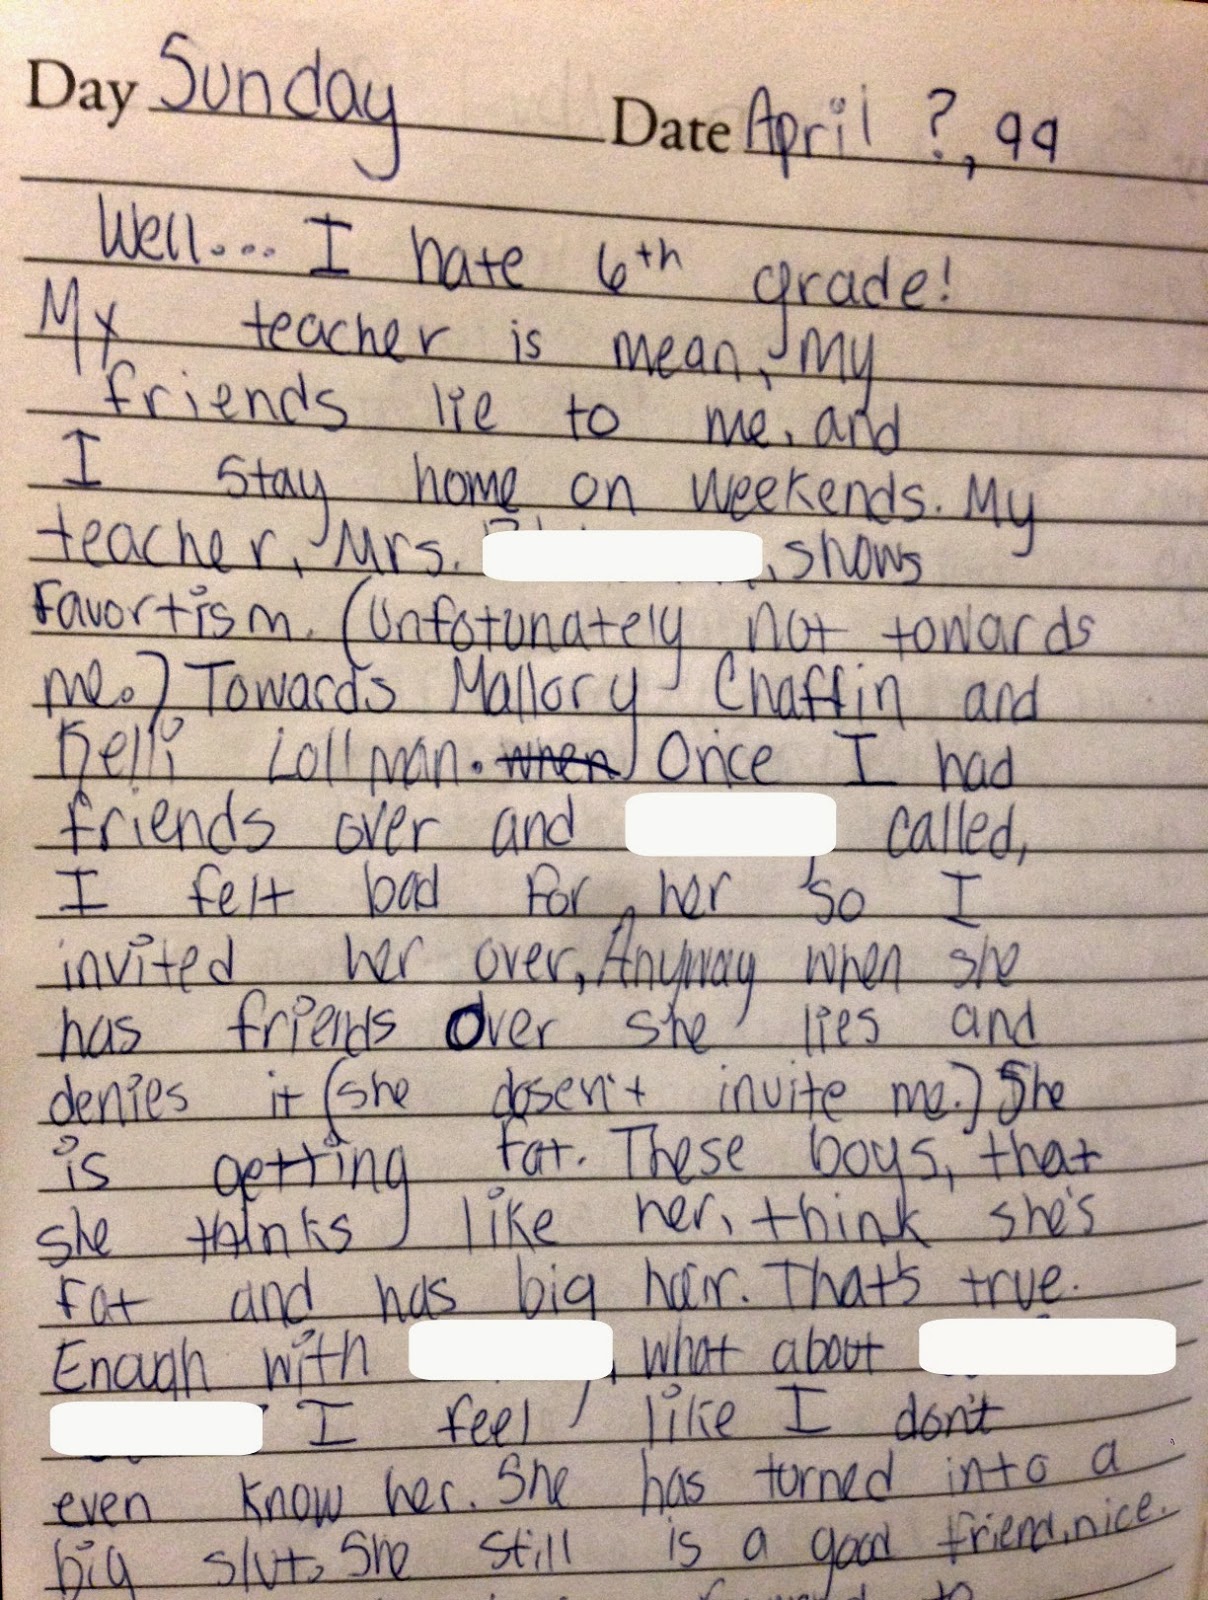 Day Sunday Date April ?, 99
Well... I hate 6th grade!
My teacher is mean, My
friends lie to me, and
I stay home on weekends. My
teacher, Mrs. , shows
Favortism. (Unfotunately not towards
me.) Towards Mallory Chaffin and
Kelli Lollman. when Once I had
friends over and called,
I felt bad for her so I
invited her over, Anyway when she
has friends over she lies and
denies it (she dosen't invite me.) She
is getting fat. These boys, that
she thinks like her, think she's
fat and has big hair. That's true.
Enough with , what about
I feel like I don't
even know her. She has turned into a
big slut. She still is a good friend, nice.
to